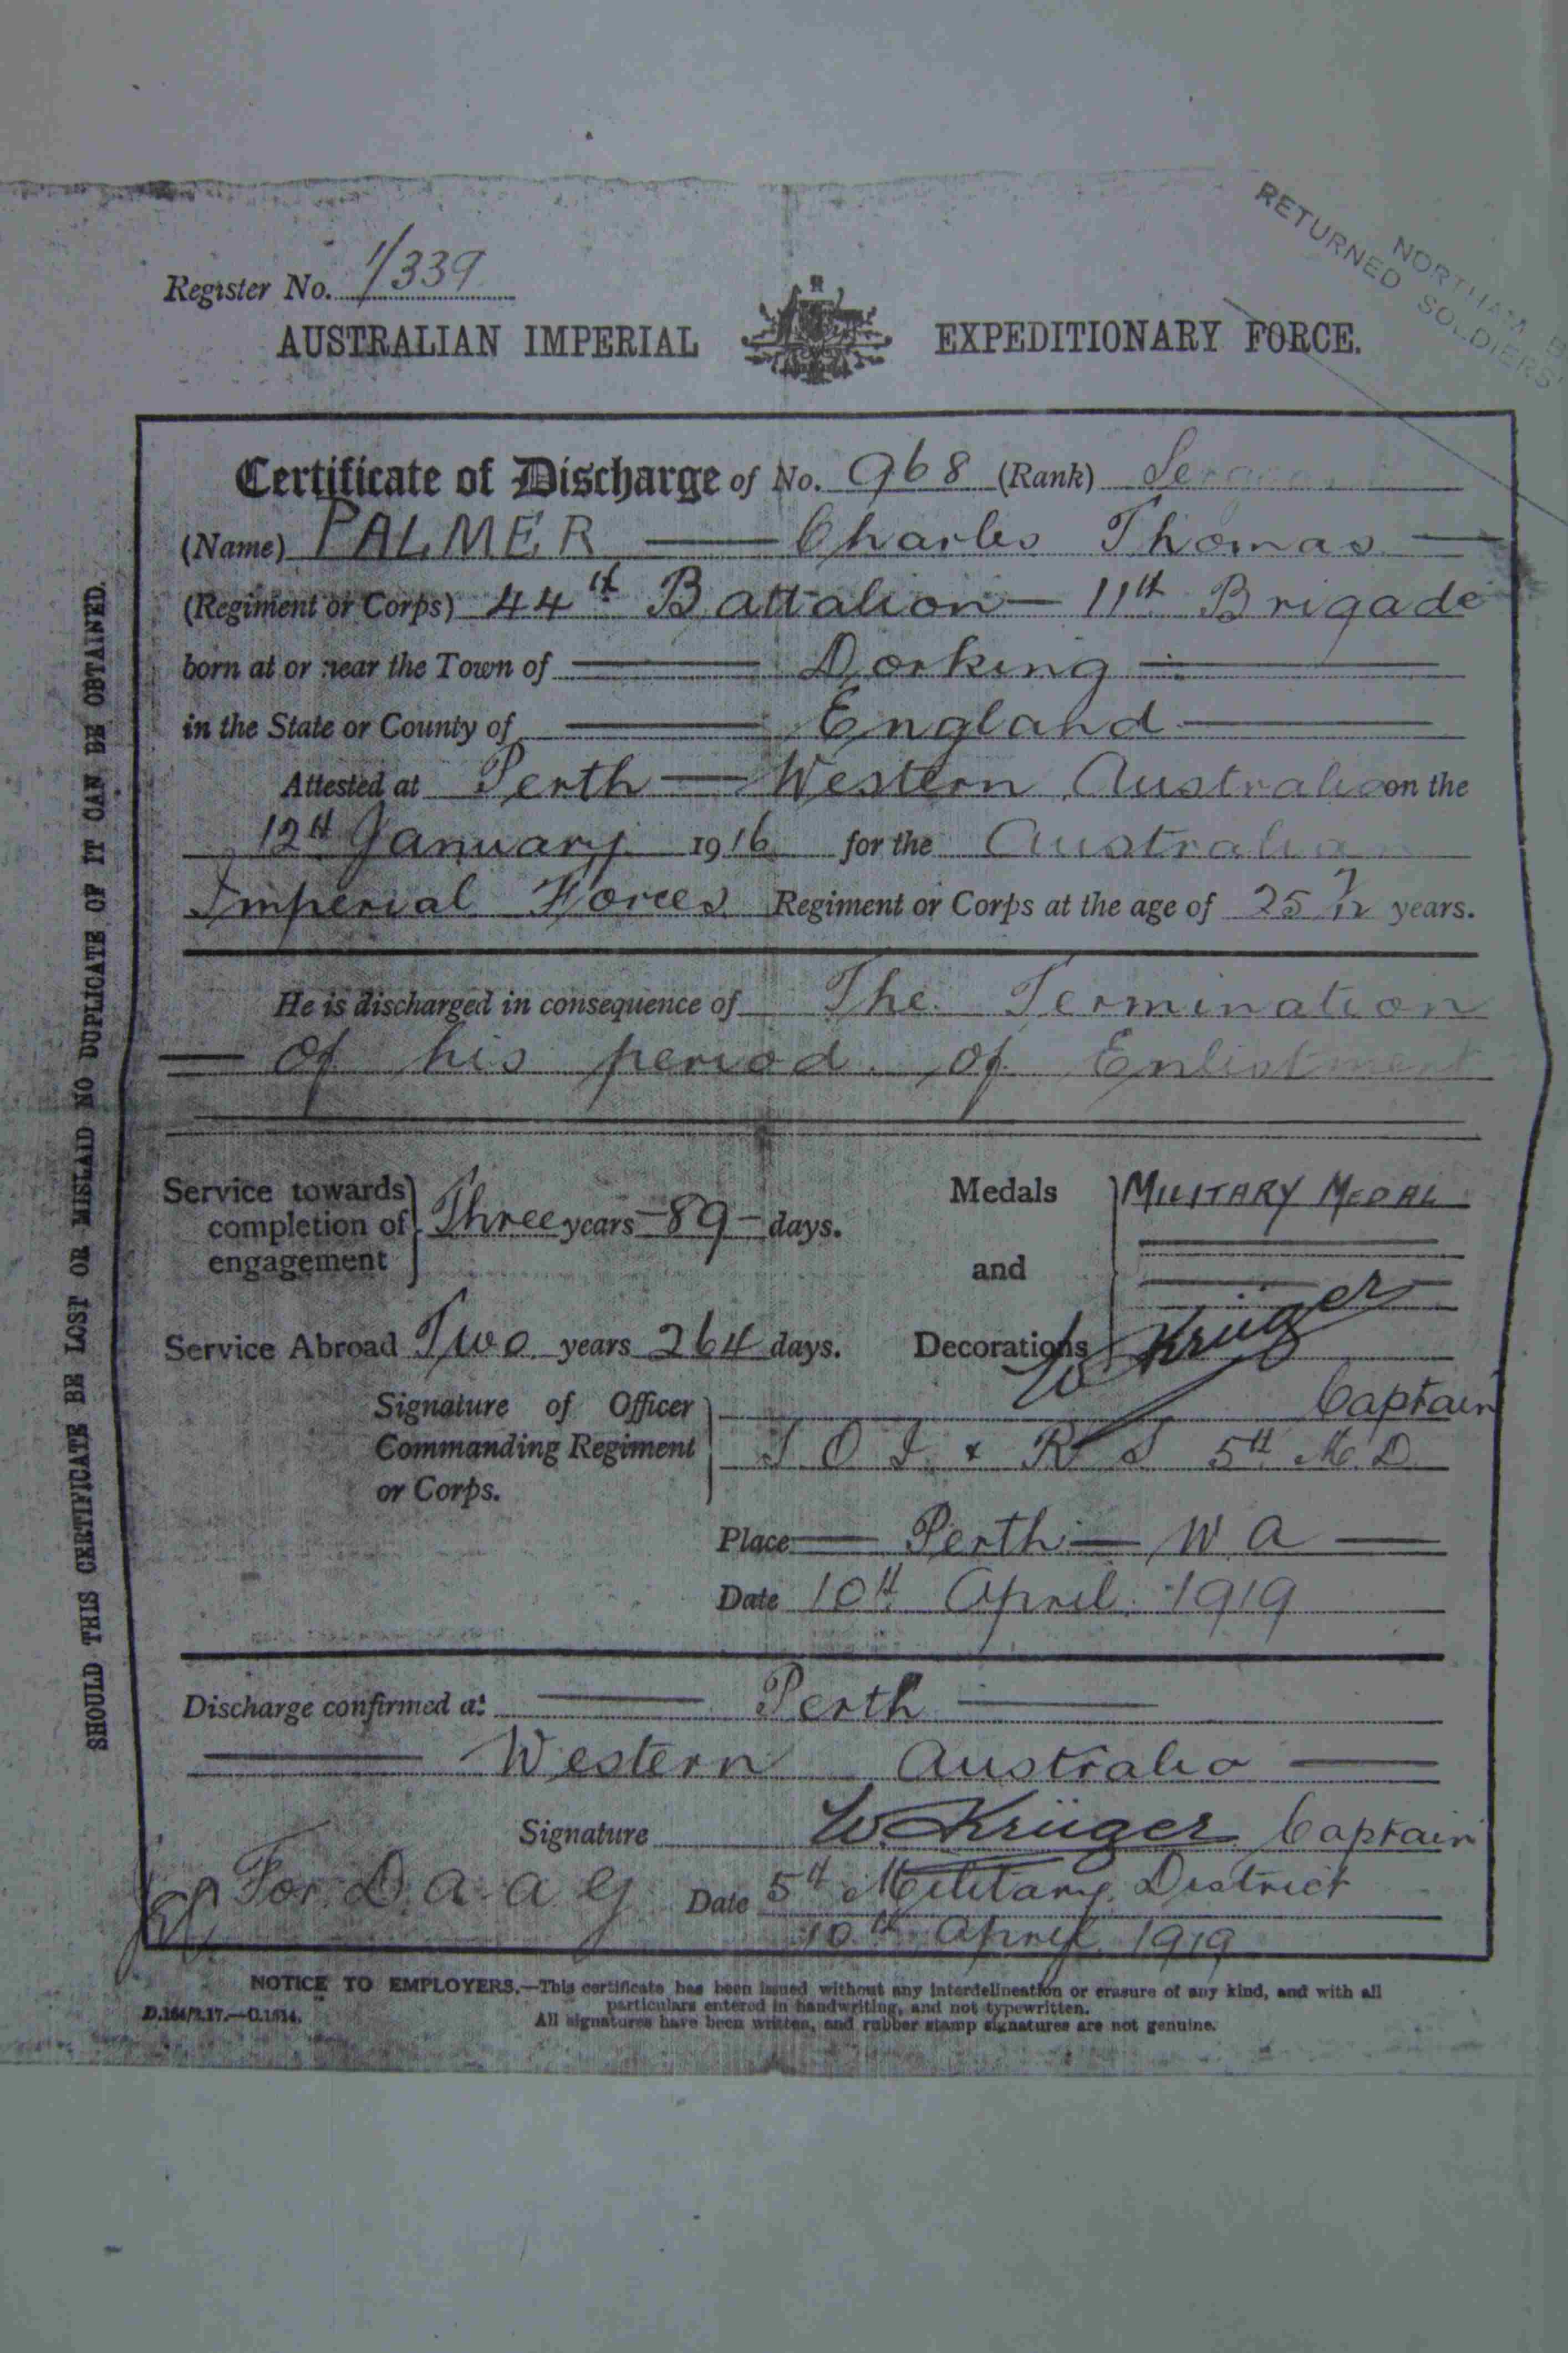 NORTHAM
RETURNED SOLDIERS'
Register No. 1/339
AUSTRALIAN IMPERIAL EXPEDITIONARY FORCE.
Certificate of Discharge of No. 968 (Rank)
(Name) PALMER — Charles Thomas —
(Regiment or Corps) 44th Battalion — 11th Brigade
born at or near the Town of — Dorking —
in the State or County of — England —
Attested at Perth — Western Australia on the
12th January 1916 for the Australian
Imperial Forces Regiment or Corps at the age of 25 years.
He is discharged in consequence of The Termination
— of his period of Enlistment
Service towards completion of engagement } Three years — 89 — days.
Medals and Decorations } MILITARY MEDAL
Service Abroad Two years 264 days.
W Krüger
Signature of Officer Commanding Regiment or Corps. } Captain
S O I & R S 5th M.D.
Place — Perth — W A —
Date 10th April 1919
Discharge confirmed at — Perth —
— Western Australia —
Signature W. Krüger Captain
For D. a. a. G Date 5th Military District
10th April 1919
NOTICE TO EMPLOYERS.—This certificate has been issued without any interdelineation or erasure of any kind, and with all
particulars entered in handwriting, and not typewritten.
All signatures have been written, and rubber stamp signatures are not genuine.
SHOULD THIS CERTIFICATE BE LOST OR MISLAID NO DUPLICATE OF IT CAN BE OBTAINED.